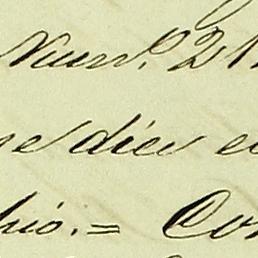 Num.º 21
se dice e
hio. = Con